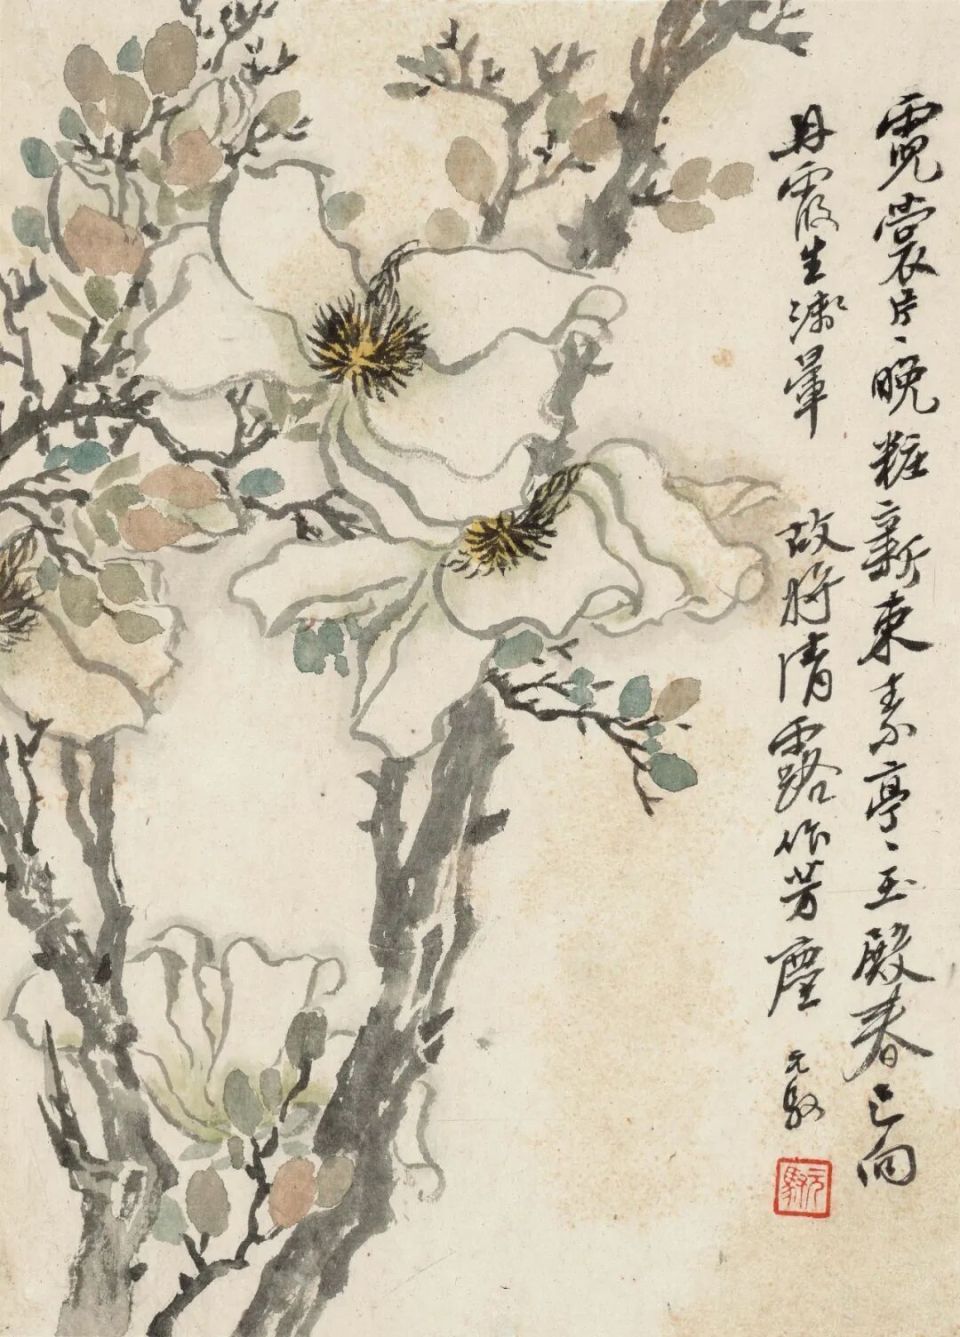 霓裳片〻晚粧新束素亭〻玉殿春已向
丹霞生淺暈故將清露作芳塵
元馭
元馭